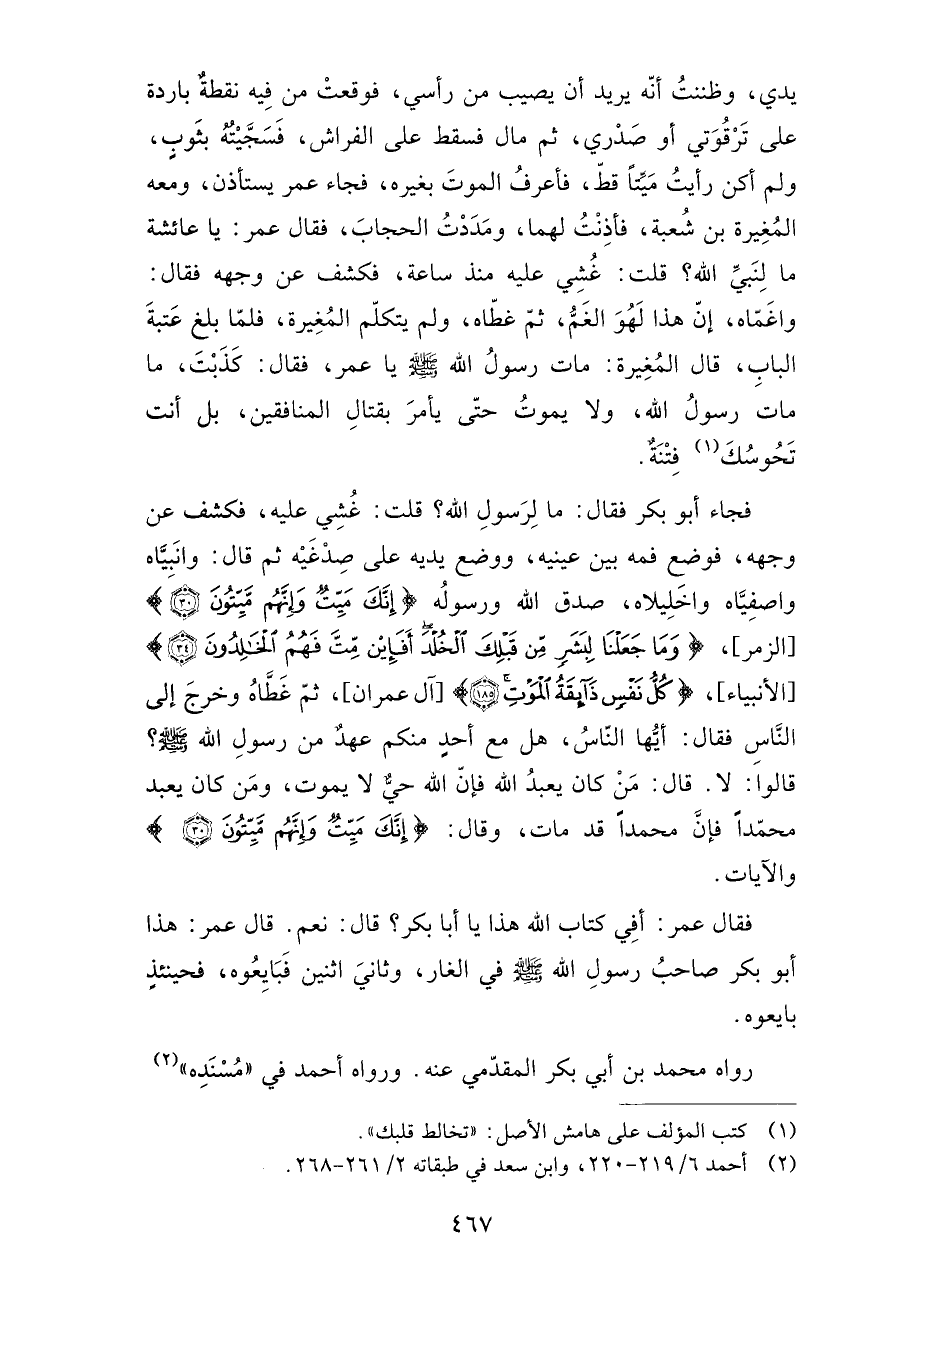 يدي، وظننتُ أنّه يريد أن يصيب من رأسي، فوقعتْ من فِيه نقطةٌ باردة
على تَرْقُوَتي أو صَدْري، ثم مال فسقط على الفراش، فَسَجَّيْتُهُ بثَوبٍ،
ولم أكن رأيتُ مَيِّتاً قطّ، فأعرفُ الموتَ بغيره، فجاء عمر يستأذن، ومعه
المُغِيرة بن شُعبة، فأذِنْتُ لهما، ومَدَدْتُ الحجابَ، فقال عمر: يا عائشة
ما لِنَبيِّ الله؟ قلت: غُشِي عليه منذ ساعة، فكشف عن وجهه فقال:
واغَمّاه، إنّ هذا لَهُوَ الغَمُّ، ثمّ غطّاه، ولم يتكلّم المُغِيرة، فلمّا بلغ عَتبةَ
البابِ، قال المُغِيرة: مات رسولُ الله ﷺ يا عمر، فقال: كَذَبْتَ، ما
مات رسولُ الله، ولا يموتُ حتّى يأمرَ بقتالِ المنافقين، بل أنت
تَحُوسُكَ(١) فِتْنَةٌ.
فجاء أبو بكر فقال: ما لِرَسولِ الله؟ قلت: غُشِي عليه، فكشف عن
وجهه، فوضع فمه بين عينيه، ووضع يديه على صِدْغَيْه ثم قال: وانَبِيَّاه
واصفِيَّاه واخَلِيلاه، صدق الله ورسولُه ﴿إِنَّكَ مَيِّتٌ وَإِنَّهُم مَّيِّتُونَ ٣٠﴾
[الزمر]، ﴿وَمَا جَعَلْنَا لِبَشَرٍ مِّن قَبْلِكَ ٱلْخُلْدَ ۖ أَفَإِي۟ن مِّتَّ فَهُمُ ٱلْخَـٰلِدُونَ ٣٤﴾
[الأنبياء]، ﴿كُلُّ نَفْسٍ ذَآئِقَةُ ٱلْمَوْتِ ۗ ١٨٥﴾ [آل عمران]، ثمّ غَطَّاهُ وخرجَ إلى
النَّاسِ فقال: أيُّها النّاسُ، هل مع أحدٍ منكم عهدٌ من رسولِ الله ﷺ؟
قالوا: لا. قال: مَنْ كان يعبدُ الله فإنّ الله حيٌّ لا يموت، ومَن كان يعبد
محمّداً فإنَّ محمداً قد مات، وقال: ﴿إِنَّكَ مَيِّتٌ وَإِنَّهُم مَّيِّتُونَ ٣٠﴾
والآيات.
فقال عمر: أفِي كتاب الله هذا يا أبا بكر؟ قال: نعم. قال عمر: هذا
أبو بكر صاحبُ رسولِ الله ﷺ في الغار، وثانيَ اثنين فَبَايِعُوه، فحينئذٍ
بايعوه.
رواه محمد بن أبي بكر المقدّمي عنه. ورواه أحمد في «مُسْنَدِه»(٢)
(١) كتب المؤلف على هامش الأصل: «تخالط قلبك».
(٢) أحمد ٦/ ٢١٩-٢٢٠، وابن سعد في طبقاته ٢/ ٢٦١-٢٦٨.
٤٦٧